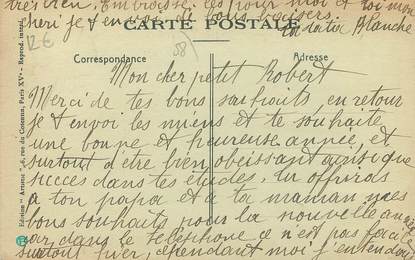 très bien. Embrasse les pour moi et toi mon
cheri je t'envoi de doux baisers
ta tatie Blanche
12€
58
CARTE POSTALE
Correspondance
Adresse
Mon cher petit Robert
Merci de tes bons souhaits en retour
je t'envoi les miens et te souhaite
une bonne et heureuse année, et
surtout d'être bien obeissant ainsi que
succes dans tes études, tu offriras
a ton papa et a ta maman mes
bons souhaits pour la nouvelle année
car dans le telephone ce n'est pas facile
surtout hier, cependant moi j'entendais
Edition "Artistic", 6, rue du Commˢ, Paris XV - Reprod. interd.